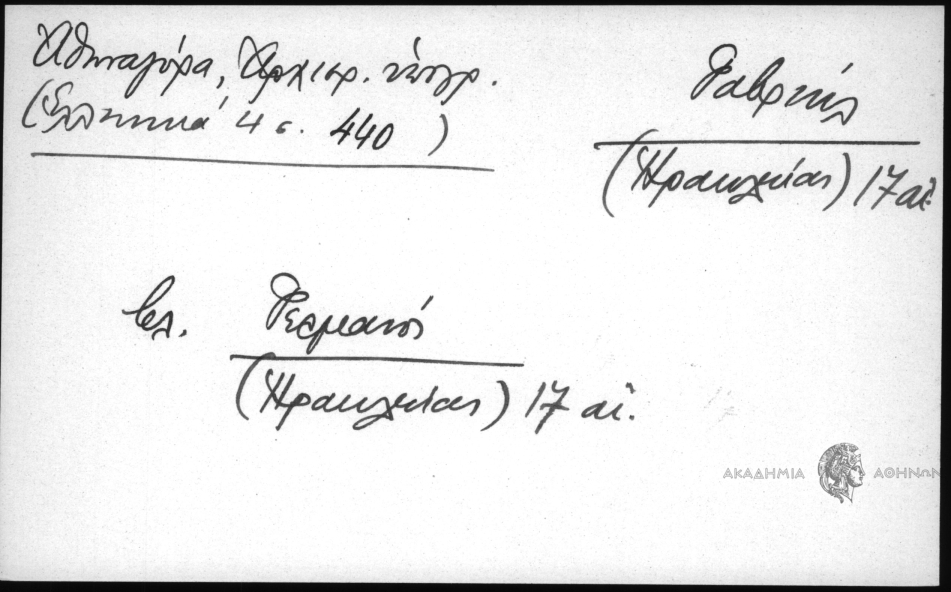 Ἀθηναγόρα, Ἀρχιερ. ὑπογρ.
(Ἑλληνικά 4 σ. 440)
Γαβριήλ
(Ἡρακλείας) 17 αἰ.
βλ. Γερμανός
(Ἡρακλείας) 17 αἰ.
ΑΚΑΔΗΜΙΑ ΑΘΗΝΩΝ